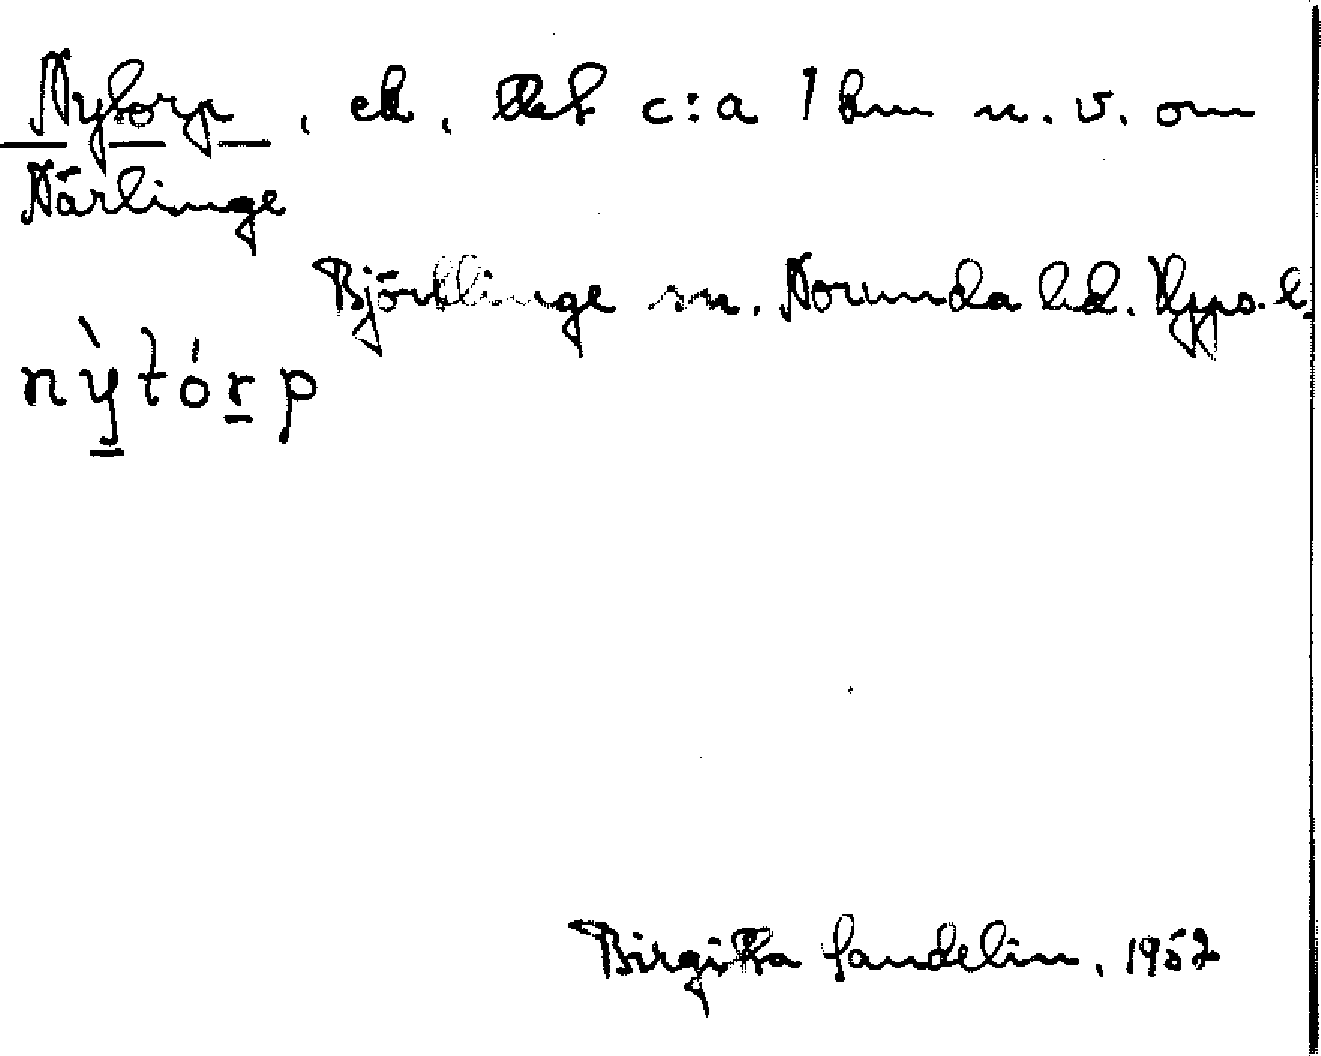 Nytorp, ek. c:a 1 km n. v. om
Närlinge
Björklinge sn. Norunda hd. Upps. l.
nỳtórp
Birgitta Sandelin, 1952